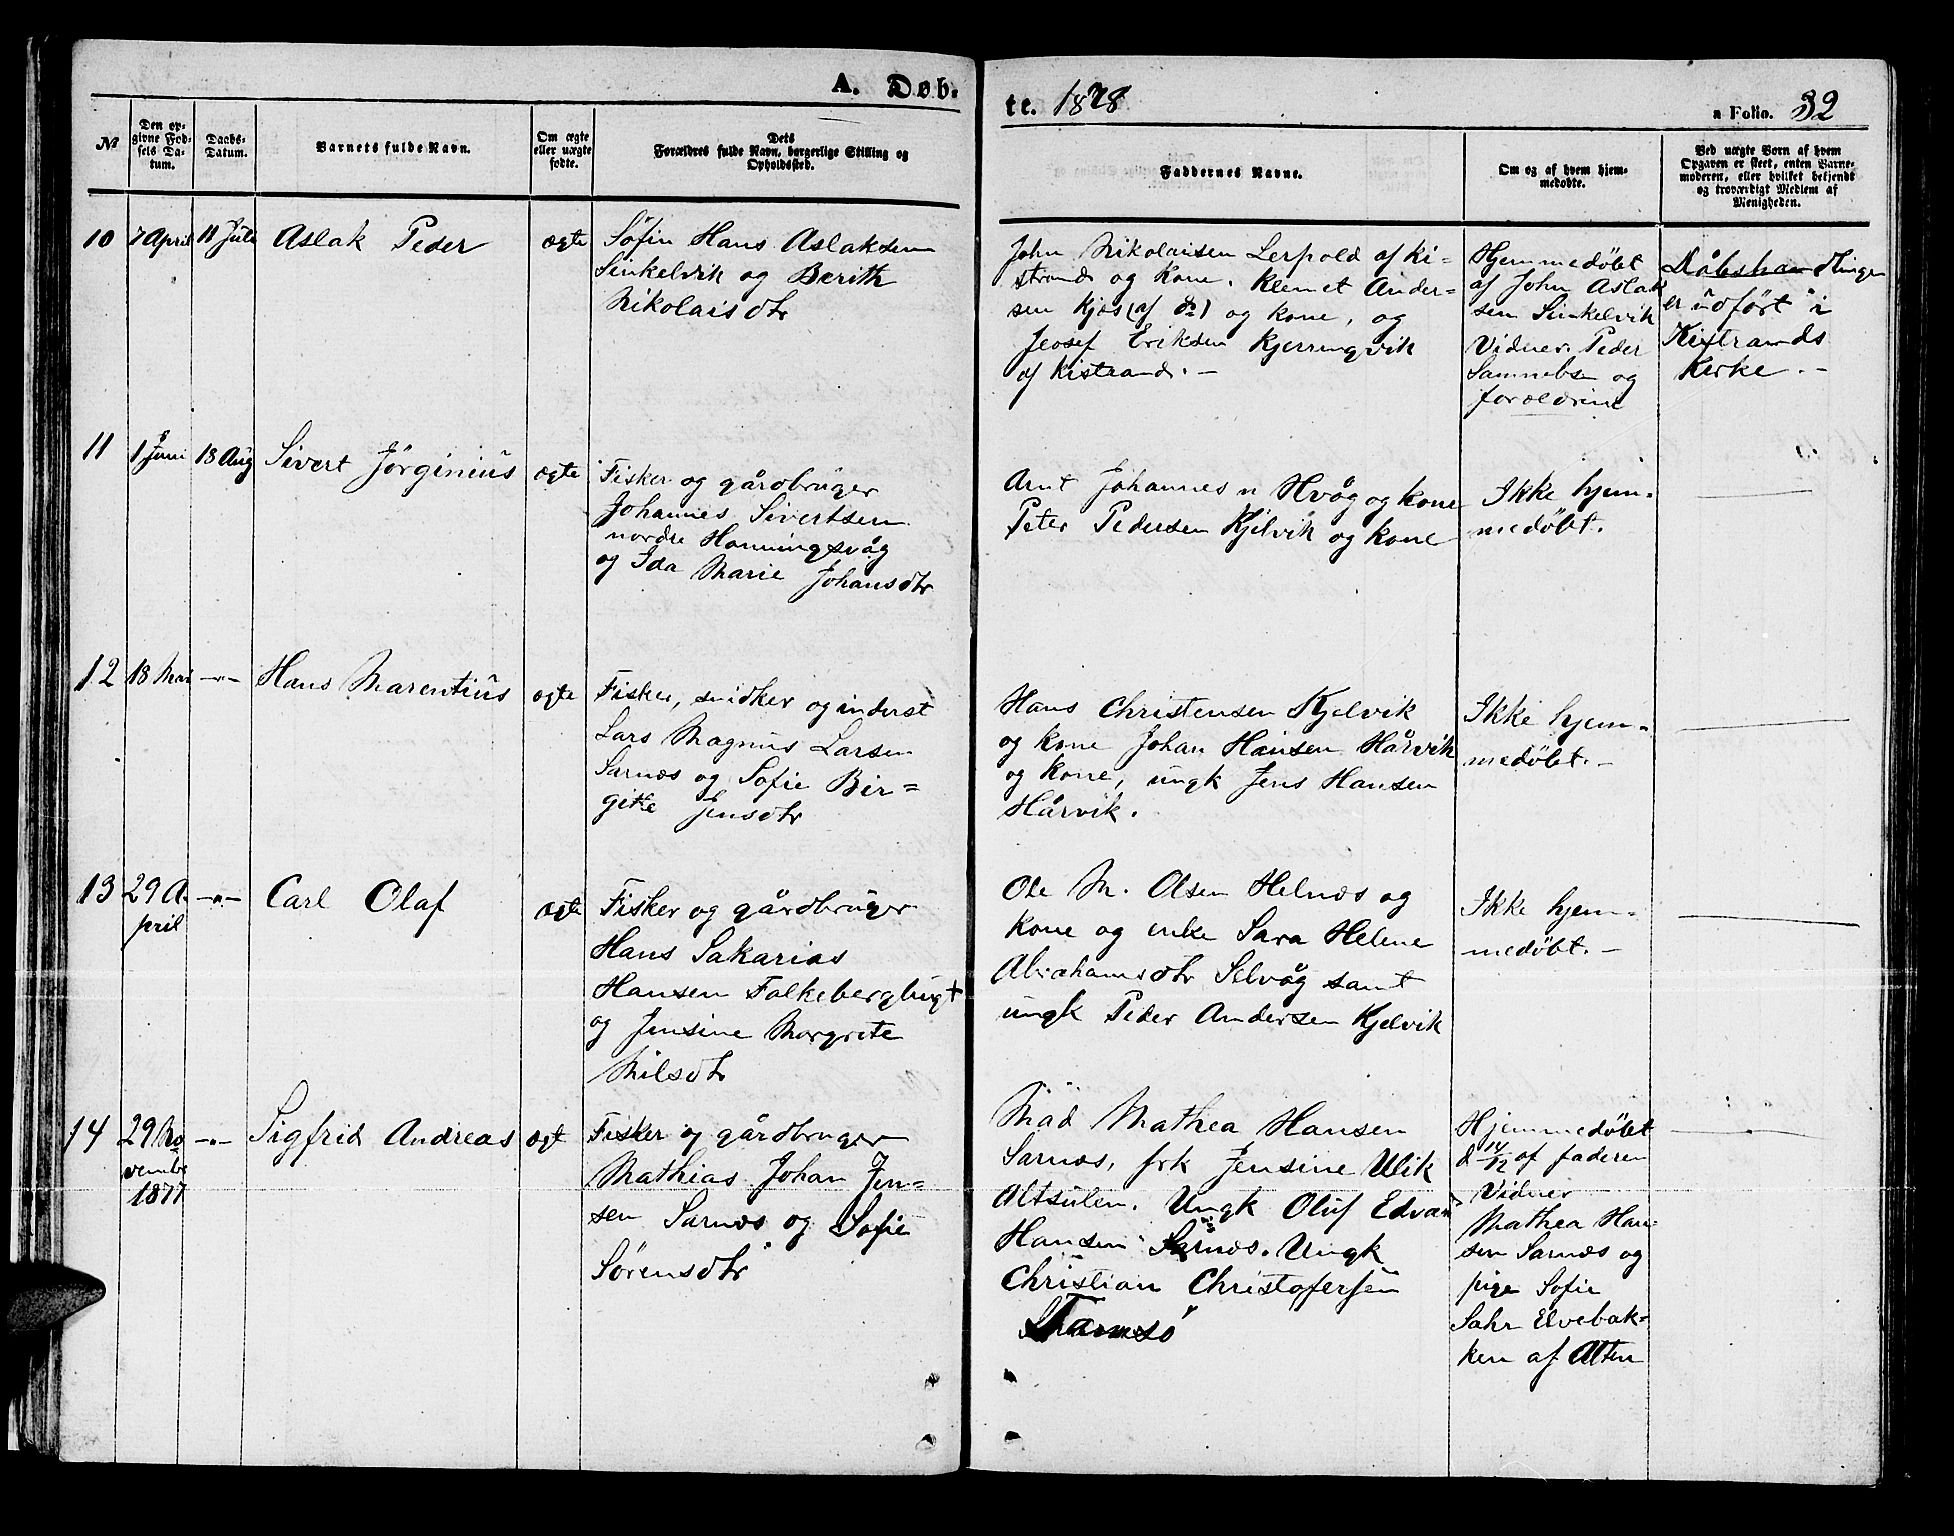 A. Døb-
te. 1878
a Folio. 32
№
Den op-
givne Fød-
sels Da-
tum.
Daabs-
Datum.
Barnets fulde Navn.
Om ægte
eller uægte
fødte.
Dets
Forældres fulde Navn, borgerlige Stilling og
Opholdssted.
Faddernes Navne.
Om og af hvem hjem-
medøbte.
Ved uægte Born af hvem
Opgaven er skeet, enten Barne-
moderen, eller hvilket bekjendt
og troværdigt Medlem af
Menigheden.
10
7 April
11 Juli
Aslak Peder
ægte
Søfin Hans Aslaksen
Sinkelvik og Berith
Nikolaisdtr
John Nikolaisen Lerpold af Ki-
strand og kone. Klemet Ander-
sen Kjøs (af do) og kone, og
Josef Eriksen Kjerringvik
af Kistrand. -
Hjemmedøbt
af John Aslak
sen Sinkelvik
Vidner. Peder
Samuelsen og
forældrene
Dåbshandlingen
er udført i
Kistrands
Kirke. -
11
1 Juni
18 Aug
Sivert Jørginius
ægte
Fisker og gårdbruger
Johannes Sivertsen
nordre Honningsvåg
og Ida Marie Johansdtr
Arnt Johannes n Hvåg og kone
Peter Pedersen Kjelvik og kone
Ikke hjem-
medøbt.
12
18 Mai
-"-
Hans Marentius
ægte
Fisker, snidker og inderst
Lars Magnus Larsen
Sarnæs og Sofie Bir=
gitte Jensdtr
Hans Christensen Kjelvik
og kone Johan Hansen Hårvik
og kone, ungk Jens Hansen
Hårvik.
Ikke hjem-
medøbt. -
13
29 A-
pril
-"-
Carl Olaf
ægte
Fisker og gårdbruger
Hans Sakarias
Hansen Falkebergbugt
og Jensine Margrete
Nilsdtr
Ole M. Olsen Helnæs og
kone og enke Sara Helene
Abrahamsdtr Selvåg samt
ungk Peder Andersen Kjelvik
Ikke hjem-
medøbt. -
14
29 No
vembr
1877
-"-
Sigfrid Andreas
ægt
Fisker og gårdbruger
Mathias Johan Jen=
sen Sarnæs og Sofie
Sørensdtr
Mad Mathea Hansen
Sarnæs, frk Jensine Ulik
Altsulen. Ungk Oluf Edvard
Hansen Sarnæs. Ungk
Christian Christofersen
Tamsø
Hjemmedøbt
d 14/12 af faderen
Vidner
Mathea Han-
sen Sarnæs og
pige Sofie
Sahr Elvebak-
ken af Alten